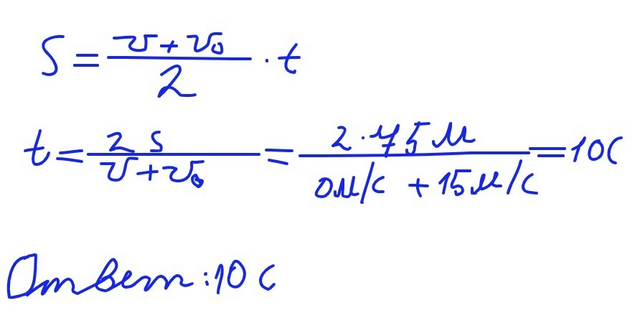 S = (v + v₀)/2 · t
t = 2 s/(v + v₀) = 2 · 75 м/(0 м/с + 15 м/с) = 10 с
Ответ: 10 с